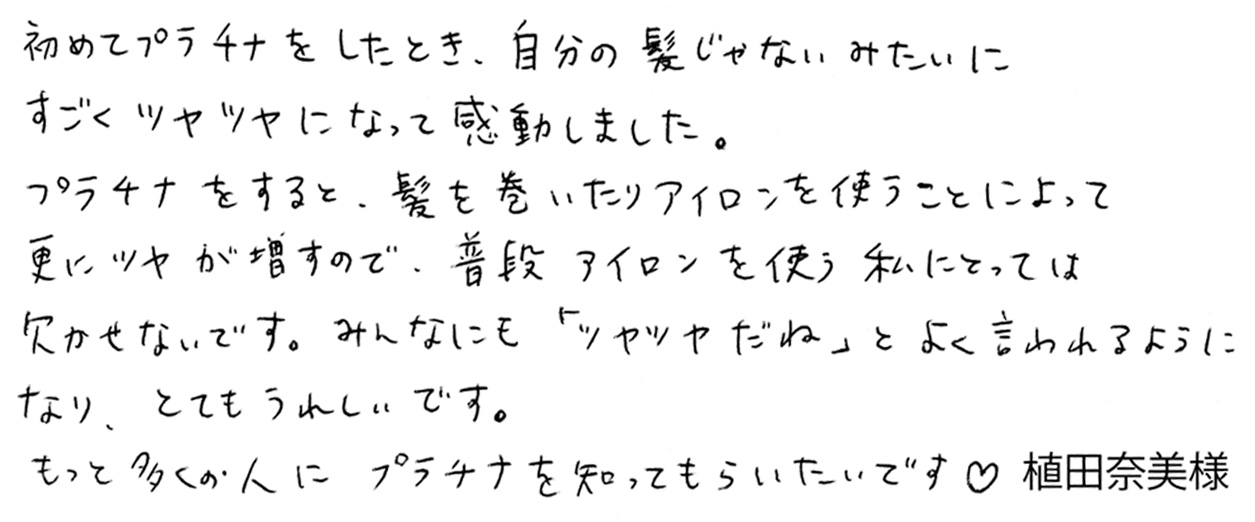 初めてプラチナをしたとき、自分の髪じゃないみたいに
すごくツヤツヤになって感動しました。
プラチナをすると、髪を巻いたりアイロンを使うことによって
更にツヤが増すので、普段アイロンを使う私にとっては
欠かせないです。みんなにも「ツヤツヤだね」とよく言われるように
なり、とてもうれしいです。
もっと多くの人にプラチナを知ってもらいたいです♡ 植田奈美様